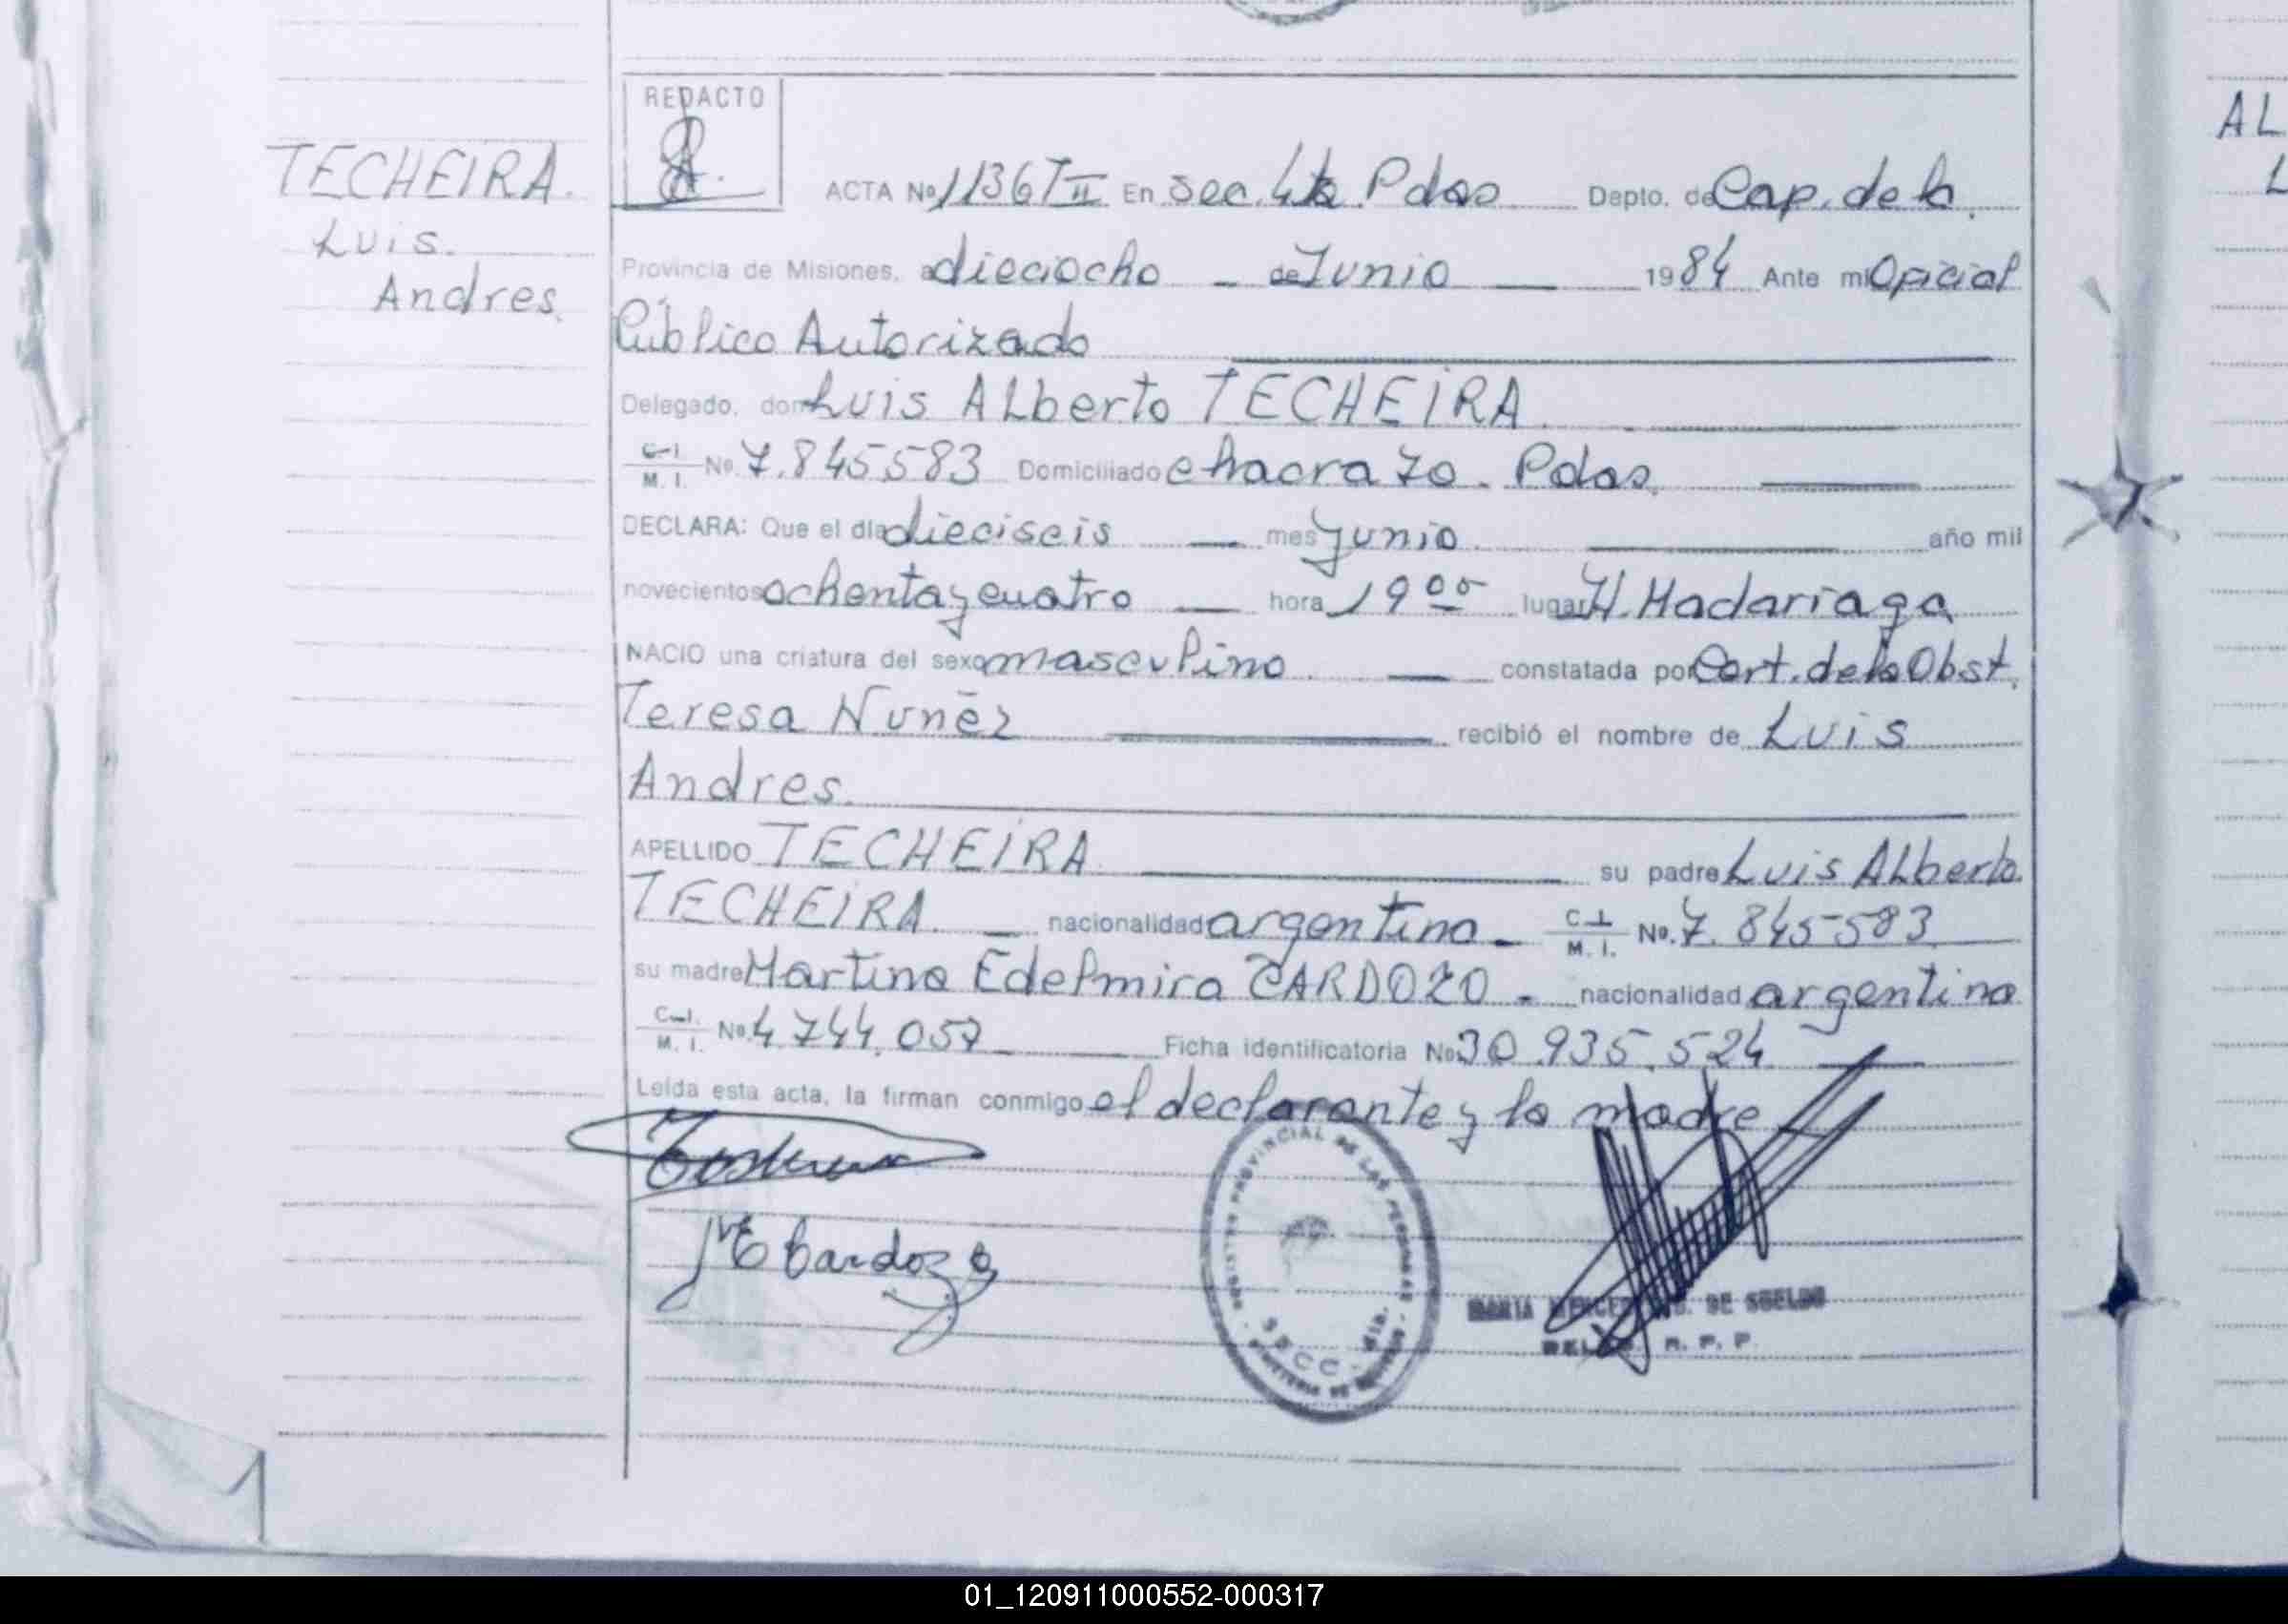 TECHEIRA.
Luis.
Andres.
REDACTO
ACTA Nº 1136 T II En Sec. 4ta Pdas Depto. de Cap. de la.
Provincia de Misiones, a dieciocho de Junio 1984 Ante mi Oficial
Público Autorizado
Delegado, don Luis ALberto TECHEIRA.
C.I. M. I. Nº. 7.845583 Domiciliado chacra 70. Pdas.
DECLARA: Que el día dieciseis mes Junio año mil
novecientos ochenta y cuatro hora 19 00 lugar H. Madariaga
NACIO una criatura del sexo masculino constatada por Cert. de la Obst.
Teresa Nuñez recibió el nombre de Luis
Andres.
APELLIDO TECHEIRA su padre Luis ALberto
TECHEIRA. nacionalidad argentina C.I. M. I. Nº. 7.845583
su madre Martina Edelmira CARDOZO nacionalidad argentina
C.I. M. I. Nº. 4.744.057 Ficha identificatoria Nº 30.935.524
Leída esta acta, la firman conmigo el declarante y la madre
ME Cardozo
REGISTRO PROVINCIAL DE LAS PERSONAS
SECC. 4ta.
MINISTERIO DE GOBIERNO
MARIA DE SUELDO
R. P. P.
AL
L
01_120911000552-000317